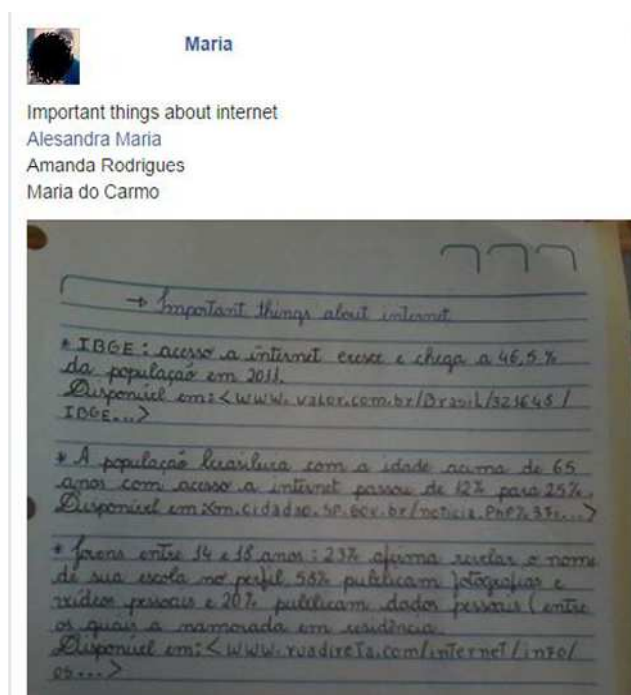 Maria
Important things about internet
Alesandra Maria
Amanda Rodrigues
Maria do Carmo
→ Important things about internet
* IBGE: acesso a internet cresce e chega a 46,5%
da população em 2011.
Disponível em: <www.valor.com.br/Brasil/321645/
IBGE...>
* A população brasileira com a idade acima de 65
anos com acesso a internet passou de 12% para 25%.
Disponível em: cidadao.sp.gov.br/noticia.PhP?
* Jovens entre 14 e 18 anos: 23% afirma revelar o nome
de sua escola no perfil 58% publicam fotografias e
vídeos pessoais e 20% publicam dados pessoais (entre
os quais a namorada em residência.
Disponível em: <www.ruadireta.com/internet/info/
os...>